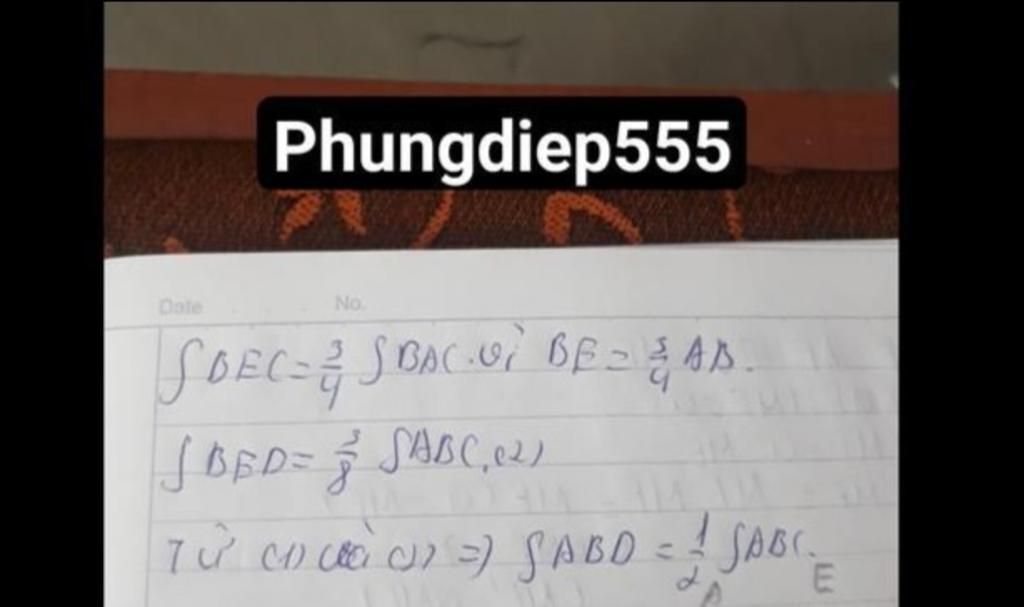 Phungdiep555
Date No.
SBEC = 3/4 SBAC. vì BE = 3/4 AB.
SBED = 3/8 SABC, (2)
Từ (1) và (2) => SABD = 1/2 SABC.
A E